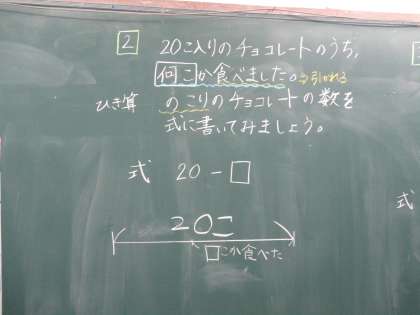 2 20こ入りのチョコレートのうち、
何こか食べました。→引かれる
ひき算 のこりのチョコレートの数を
式に書いてみましょう。
式 20-□
20こ
□こか食べた
式